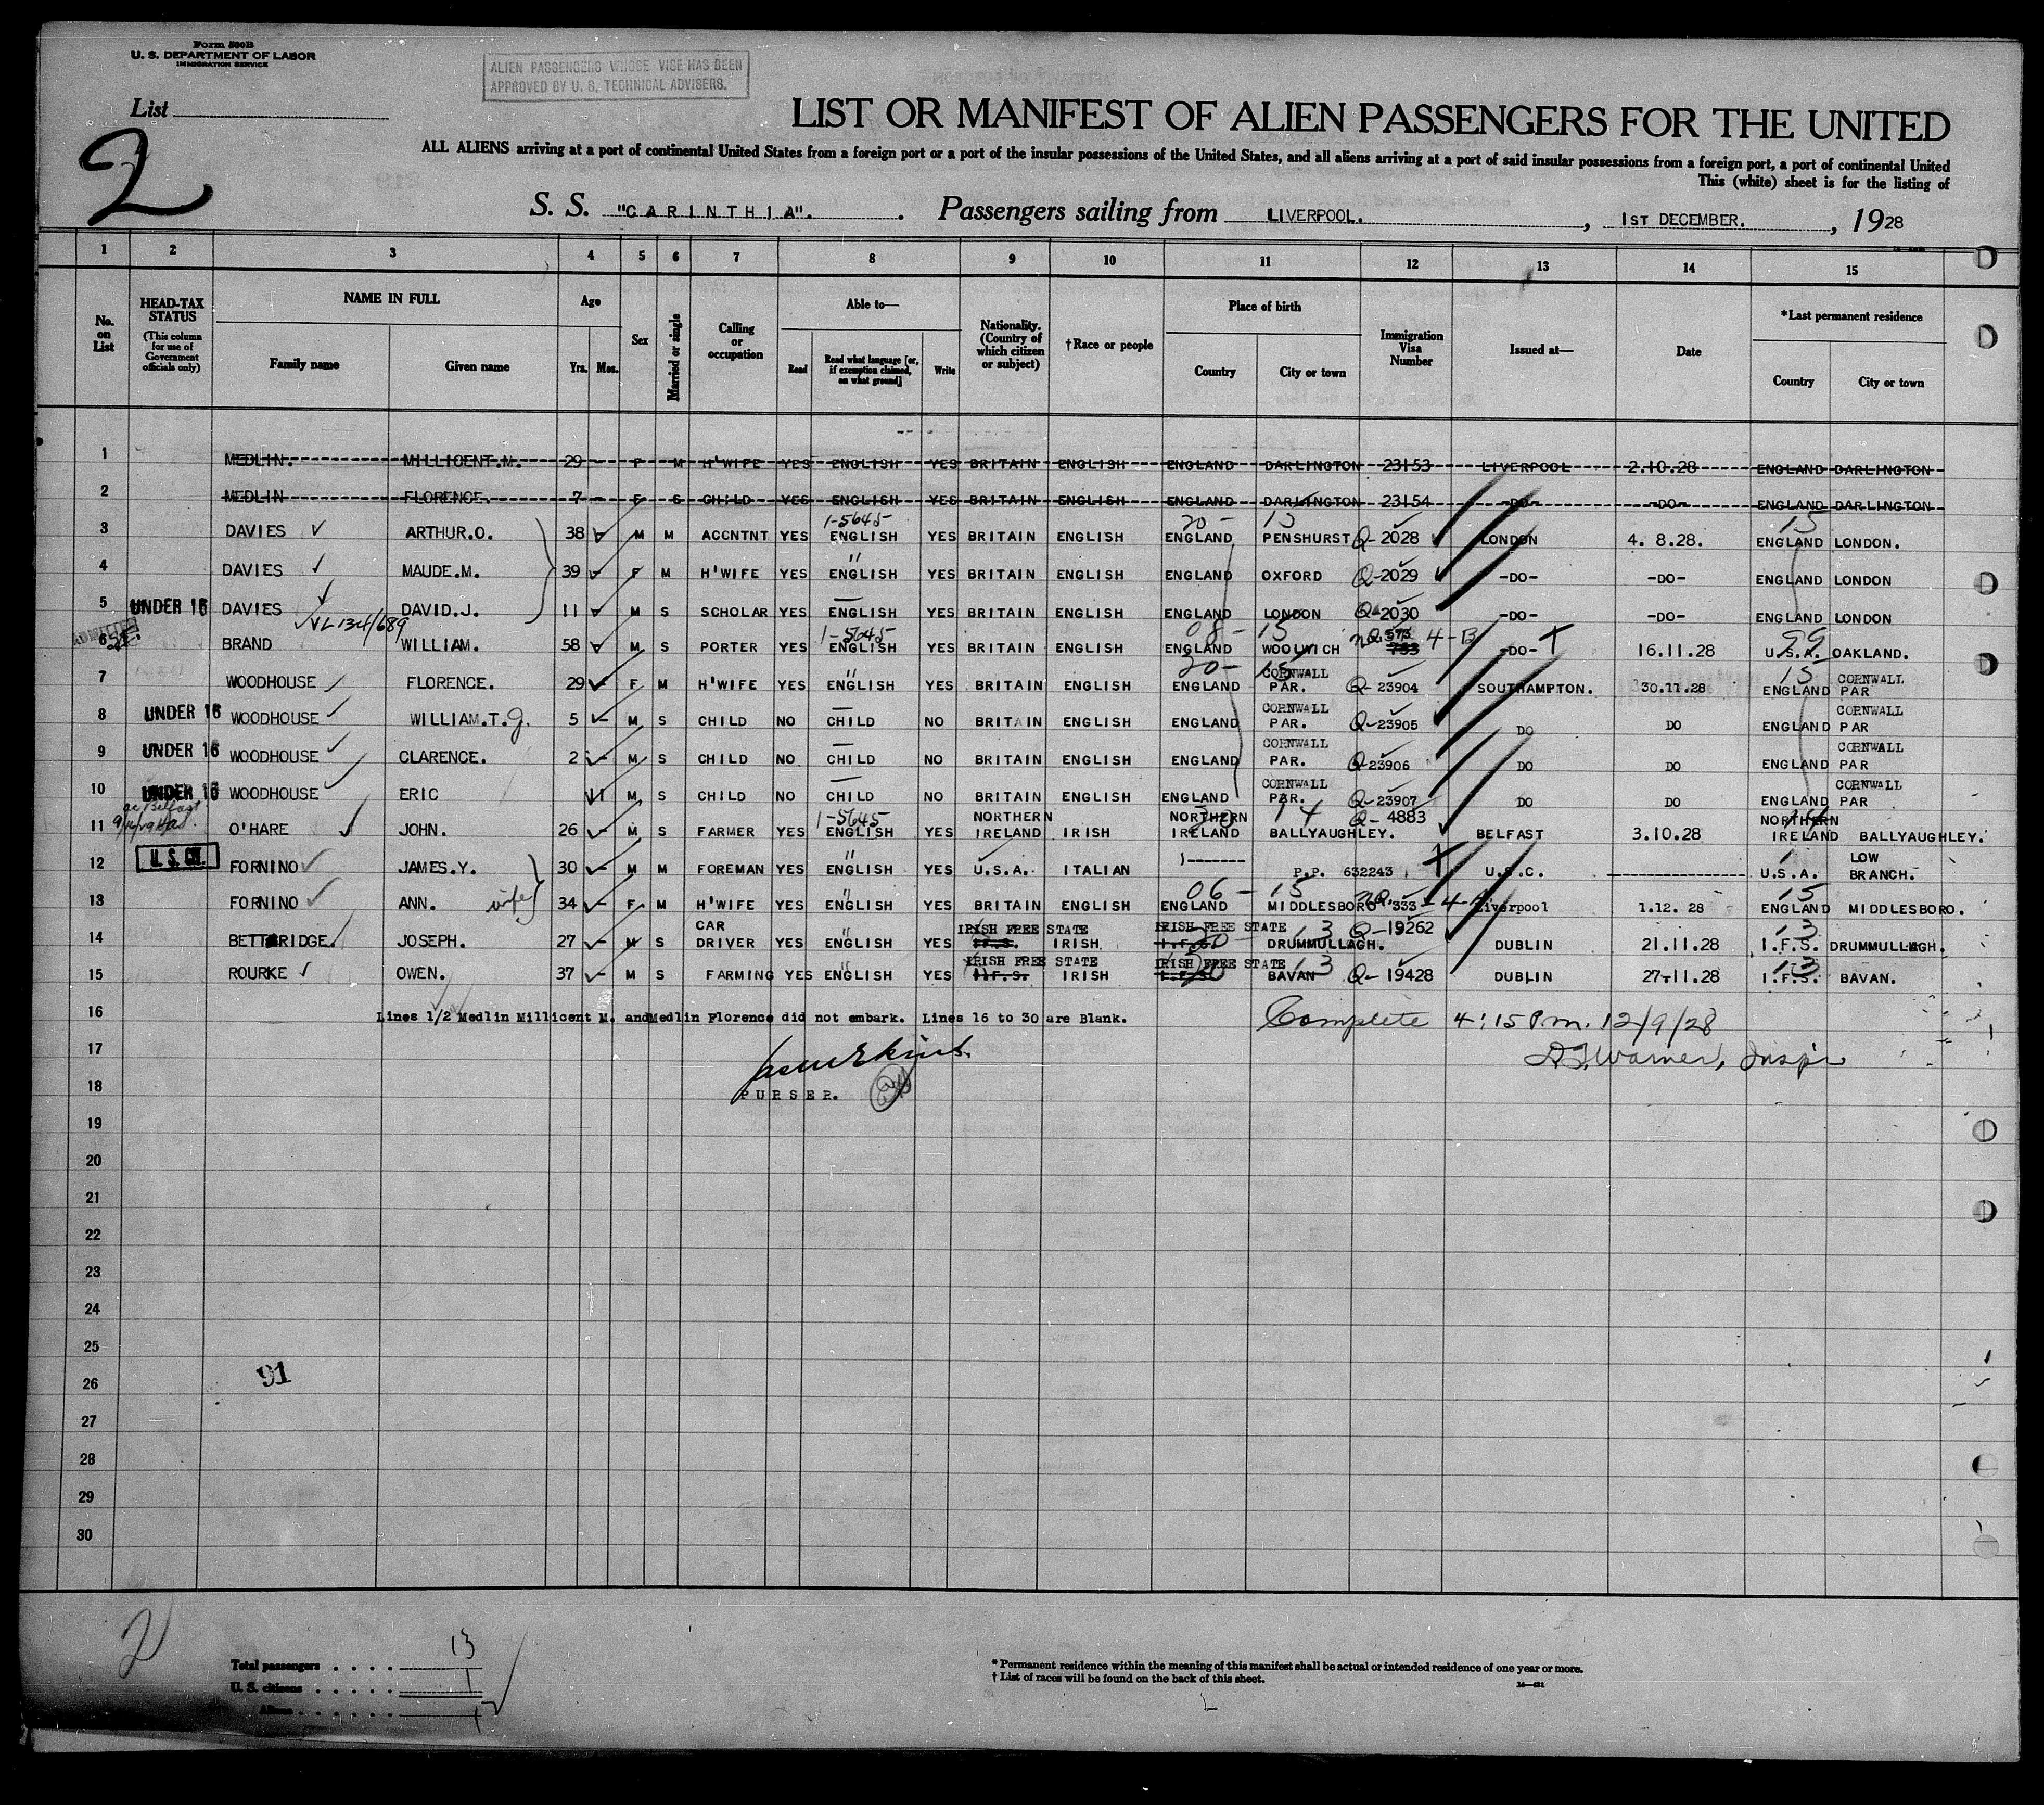 Form 500B
U. S. DEPARTMENT OF LABOR
IMMIGRATION SERVICE
ALIEN PASSENGERS WHOSE VISE HAS BEEN
APPROVED BY U. S. TECHNICAL ADVISERS.
List
2
LIST OR MANIFEST OF ALIEN PASSENGERS FOR THE UNITED
ALL ALIENS arriving at a port of continental United States from a foreign port or a port of the insular possessions of the United States, and all aliens arriving at a port of said insular possessions from a foreign port, a port of continental United
This (white) sheet is for the listing of
S. S. "CARINTHIA". Passengers sailing from LIVERPOOL. , 1ST DECEMBER. , 1928
1 2 3 4 5 6 7 8 9 10 11 12 13 14 15
No. on List
HEAD-TAX STATUS (This column for use of Government officials only)
NAME IN FULL Family name Given name
Age Yrs. Mos.
Sex
Married or single
Calling or occupation
Able to— Read Read what language [or, if exemption claimed, on what ground] Write
Nationality. (Country of which citizen or subject)
†Race or people
Place of birth Country City or town
Immigration Visa Number
Issued at—
Date
*Last permanent residence Country City or town
1 MEDLIN. MILLICENT.M. 29 - F M H'WIFE YES ENGLISH YES BRITAIN ENGLISH ENGLAND DARLINGTON 23153 LIVERPOOL 2.10.28 ENGLAND DARLINGTON
2 MEDLIN FLORENCE. 7 - F S CHILD YES ENGLISH YES BRITAIN ENGLISH ENGLAND DARLINGTON 23154 -DO- -DO- ENGLAND DARLINGTON
1-5645 20- 15 15
3 DAVIES ARTHUR.O. 38 M M ACCNTNT YES ENGLISH YES BRITAIN ENGLISH ENGLAND PENSHURST Q-2028 LONDON 4. 8.28. ENGLAND LONDON.
4 DAVIES MAUDE.M. 39 F M H'WIFE YES " ENGLISH YES BRITAIN ENGLISH ENGLAND OXFORD Q-2029 -DO- -DO- ENGLAND LONDON
5 UNDER 16 DAVIES DAVID.J. 11 M S SCHOLAR YES ENGLISH YES BRITAIN ENGLISH ENGLAND LONDON Q-2030 -DO- -DO- ENGLAND LONDON
VL134/689 1-5645 08- 15 99
6 BRAND WILLIAM. 58 M S PORTER YES ENGLISH YES BRITAIN ENGLISH ENGLAND WOOLWICH NQ. 573 733 4-B -DO- 16.11.28 U.S.A. OAKLAND.
20- 15 15
7 WOODHOUSE FLORENCE. 29 F M H'WIFE YES " ENGLISH YES BRITAIN ENGLISH ENGLAND CORNWALL PAR. Q-23904 SOUTHAMPTON. 30.11.28 ENGLAND CORNWALL PAR
8 UNDER 16 WOODHOUSE WILLIAM.T.J. 5 M S CHILD NO CHILD NO BRITAIN ENGLISH ENGLAND CORNWALL PAR. Q-23905 DO DO ENGLAND CORNWALL PAR
9 UNDER 16 WOODHOUSE CLARENCE. 2 M S CHILD NO CHILD NO BRITAIN ENGLISH ENGLAND CORNWALL PAR. Q-23906 DO DO ENGLAND CORNWALL PAR
10 UNDER 16 WOODHOUSE ERIC 11 M S CHILD NO CHILD NO BRITAIN ENGLISH ENGLAND CORNWALL PAR. Q-23907 DO DO ENGLAND CORNWALL PAR
1-5645 20 14 14
11 O'HARE JOHN. 26 M S FARMER YES ENGLISH YES NORTHERN IRELAND IRISH NORTHERN IRELAND BALLYAUGHLEY. Q-4883 BELFAST 3.10.28 NORTHERN IRELAND BALLYAUGHLEY.
12 U.S. CIT. FORNINO JAMES.Y. 30 M M FOREMAN YES " ENGLISH YES U.S.A. ITALIAN 1------- P.P. 632243 U.S.C. ------- 1 U.S.A. LOW BRANCH.
06 - 15 15
13 FORNINO ANN. wife 34 F M H'WIFE YES " ENGLISH YES BRITAIN ENGLISH ENGLAND MIDDLESBORO NQ. 333 Liverpool 1.12. 28 ENGLAND MIDDLESBORO.
14 BETTERIDGE. JOSEPH. 27 M S CAR DRIVER YES " ENGLISH YES IRISH FREE STATE I.F.S. IRISH IRISH FREE STATE I.F.S. 20 13 DRUMMULLAGH. Q-19262 DUBLIN 21.11.28 13 I.F.S. DRUMMULLAGH.
15 ROURKE OWEN. 37 M S FARMING YES " ENGLISH YES IRISH FREE STATE I.F.S. IRISH IRISH FREE STATE I.F.S. 20 13 BAVAN Q-19428 DUBLIN 27-11.28 13 I.F.S. BAVAN.
16 Lines 1/2 Medlin Millicent M. and Medlin Florence did not embark. Lines 16 to 30 are Blank. Complete 4:15 P.m. 12/9/28
17 Warner, Inspr
18 PURSER.
19
20
21
22
23
24
25
26 91
27
28
29
30
2
Total passengers . . . . 13
U. S. citizens . . . . . 1
Aliens . . . . . .
* Permanent residence within the meaning of this manifest shall be actual or intended residence of one year or more.
† List of races will be found on the back of this sheet.